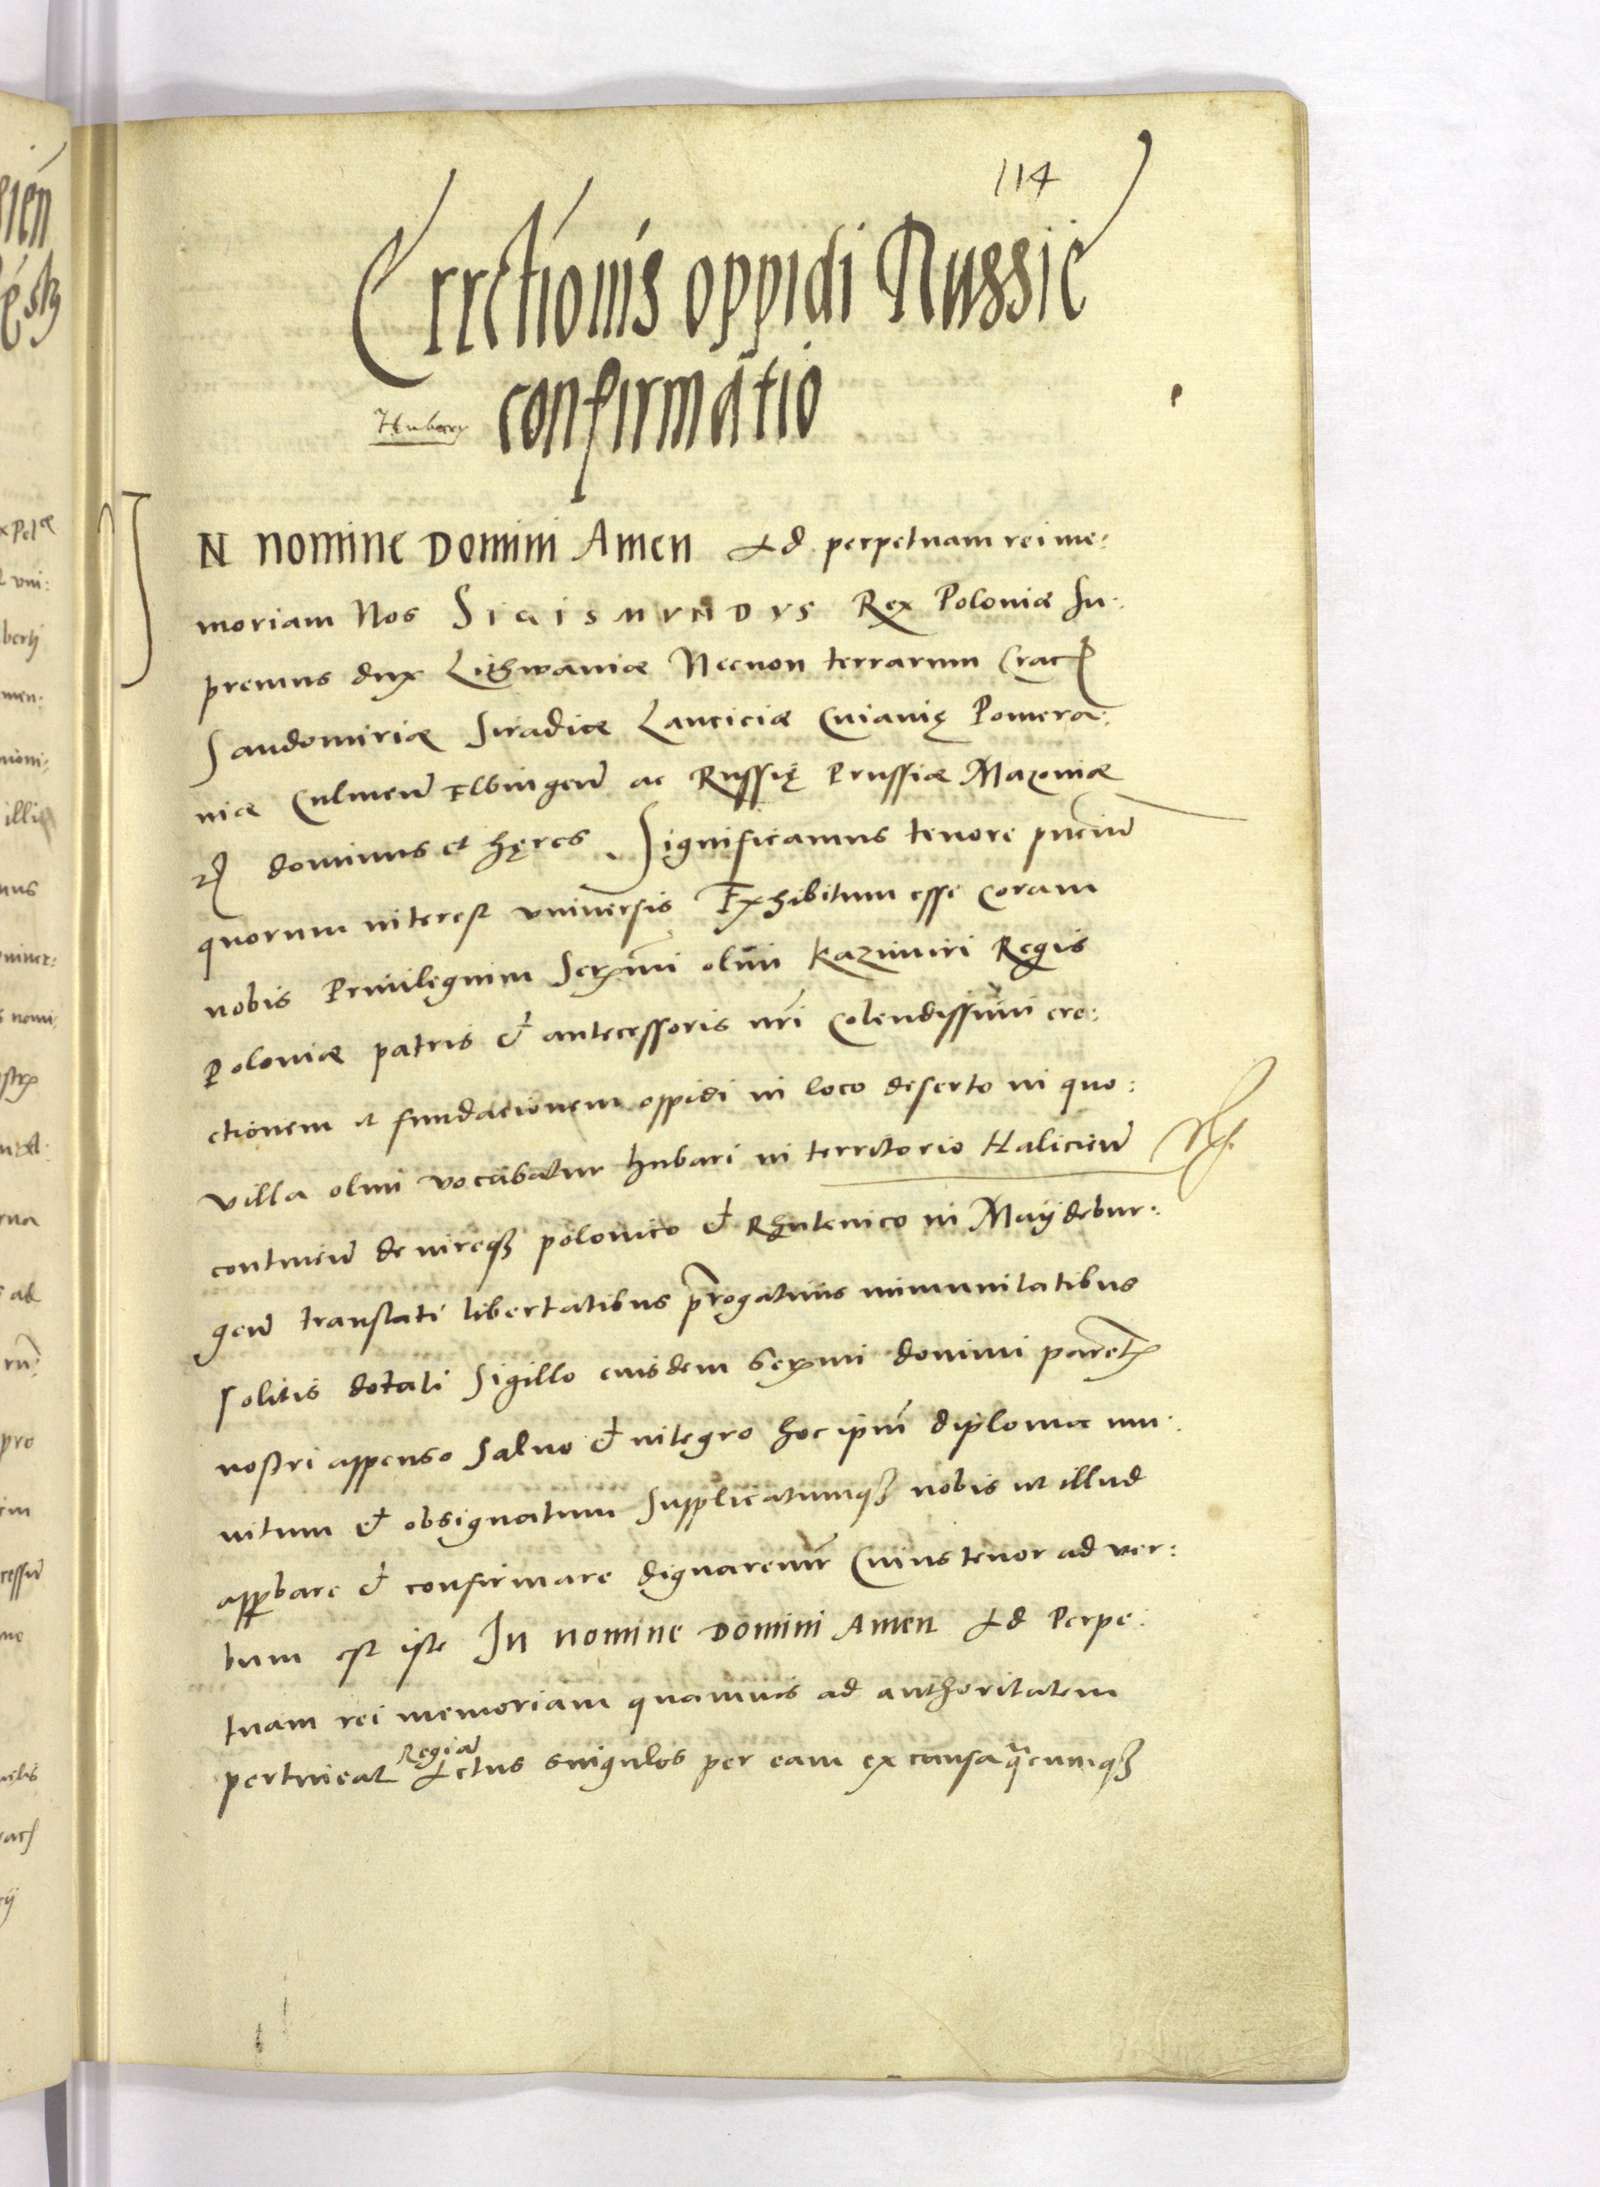 114
Errctionis oppidi Russie
confirmatio
IN nomine Domini Amen Ad perpetuam rei me:
moriam Nos SIGISMVNDVS Rex Poloniæ Su:
premus dux Lithwaniæ Necnon terrarum Crac
Sandomiriæ Siradiæ Lanciciæ Cuiauię Pomera:
niæ Culmeñ Elbingeñ ac Russię Prussiæ Mazouiæ
dominus et hęres. Significamus tenore pñciũ
quorum interest vniuersis Exhibitum esse coram
nobis Priuilegium Serꝫmi olim Kazimiri Regis
Poloniæ patris & antecessoris nr̃i Colendissimi ere:
ctionem et fundacionem oppidi in loco deserto in quo:
villa olim vocabatur hubari in territorio Halicień
contineñ de iureqꝫ polonico & Rhutenico in Maÿdebur:
geñ translati libertatibus p̃rogatiuis immunitatibus
solitis dotati Sigillo eiusdem Serꝫmi domini parẽt
nostri appenso saluo & integro hoc ipm̃ diploma mu:
nitum & obsignatum Supplicatumqꝫ nobis ut illud
appbare & confirmare dignaremr̃ Cuius tenor ad ver:
bum est iste In nomine Domini Amen Ad Perpe:
tuam rei memoriam quamuis ad authoritatem
pertineat Regiã Actus singulos per eam ex causa q̃cumqꝫ